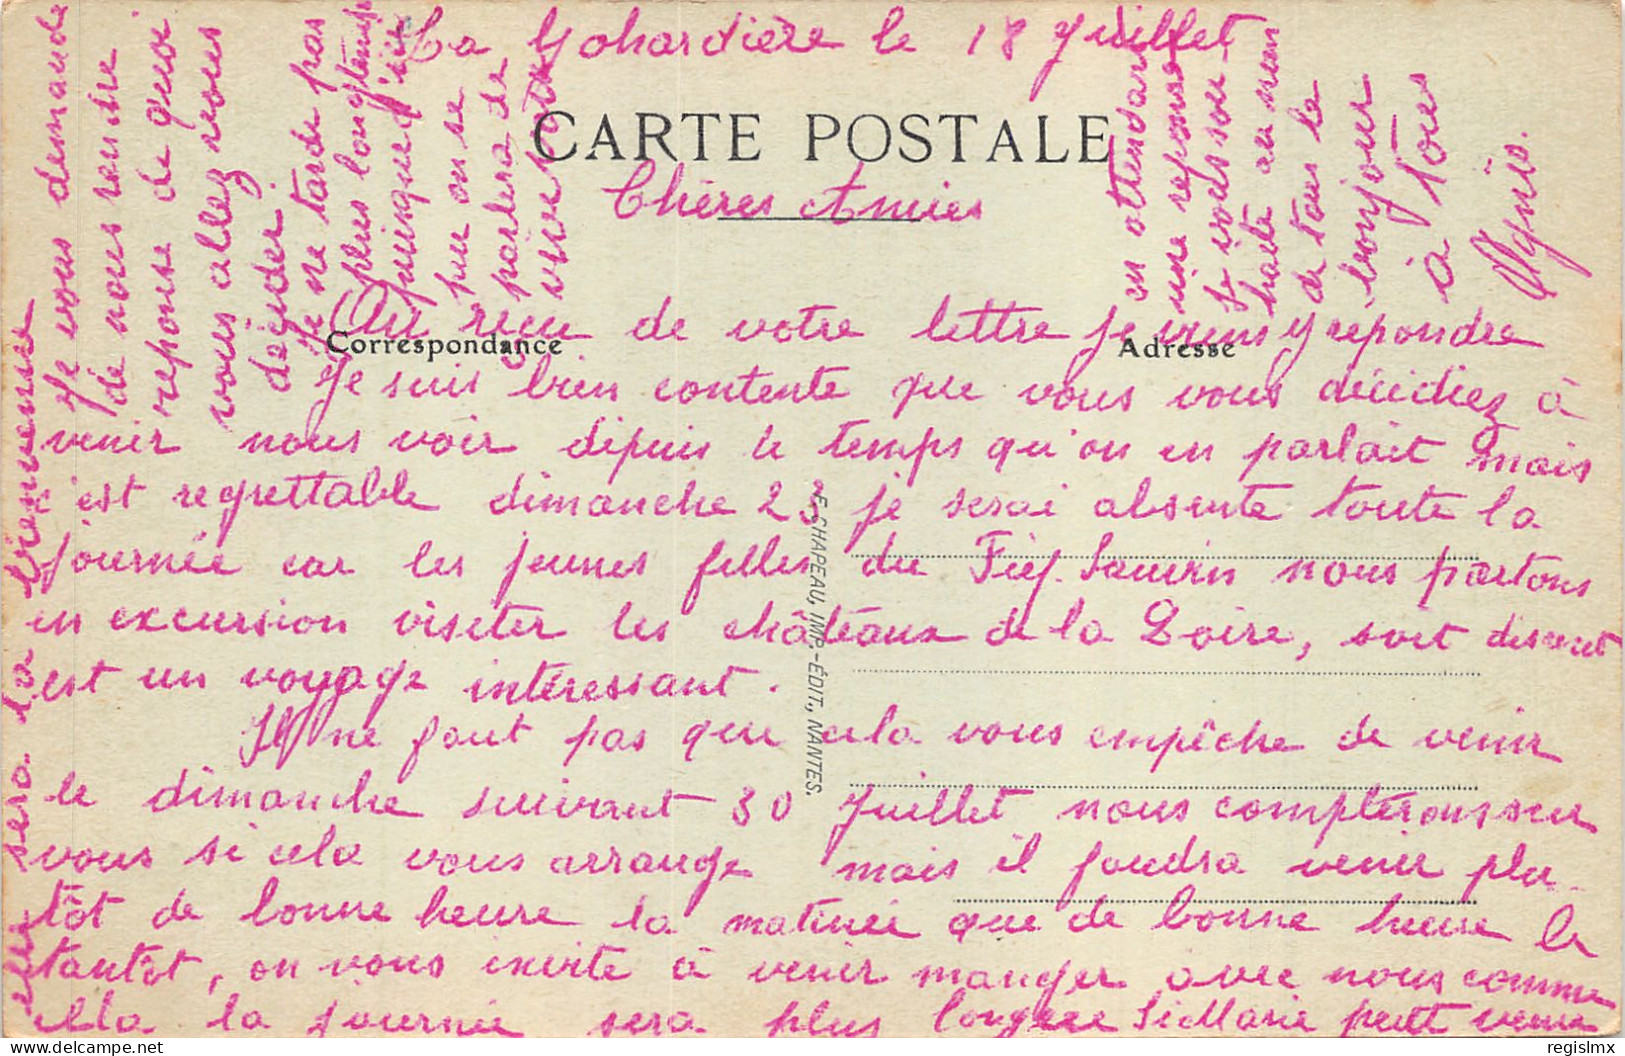 La Gohardière le 18 Juillet
CARTE POSTALE
Chères Amies
Correspondance
Adresse
Au reçu de votre lettre je viens y répondre
Je suis bien contente que vous vous décidiez à
venir nous voir depuis le temps qu'on en parlait mais
c'est regrettable dimanche 23 je serai absente toute la
journée car les jeunes filles du Fief-Sauvin nous partons
en excursion visiter les châteaux de la Loire, soit disant
c'est un voyage intéressant.
Il ne faut pas que cela vous empêche de venir
le dimanche suivant 30 Juillet nous compterons sur
vous si cela vous arrange mais il faudra venir plu
tôt de bonne heure la matinée que de bonne heure le
tantôt, on vous invite à venir manger avec nous comme
cela la journée sera plus longue Si Marie peut venir
elle sera la bienvenue
Je vous demande
de nous rendre
reponse de quoi
vous allez vous
décider.
Je ne tarde pas
plus longtemps
puisque d'ici
peu on se
parlera de
vive voix
en attendant
une reponse
Je vous sou-
haite au nom
de tous le
bonjour
à Tous
Agnès.
E. CHAPEAU, IMP.-ÉDIT., NANTES.
delcampe.net
regislmx